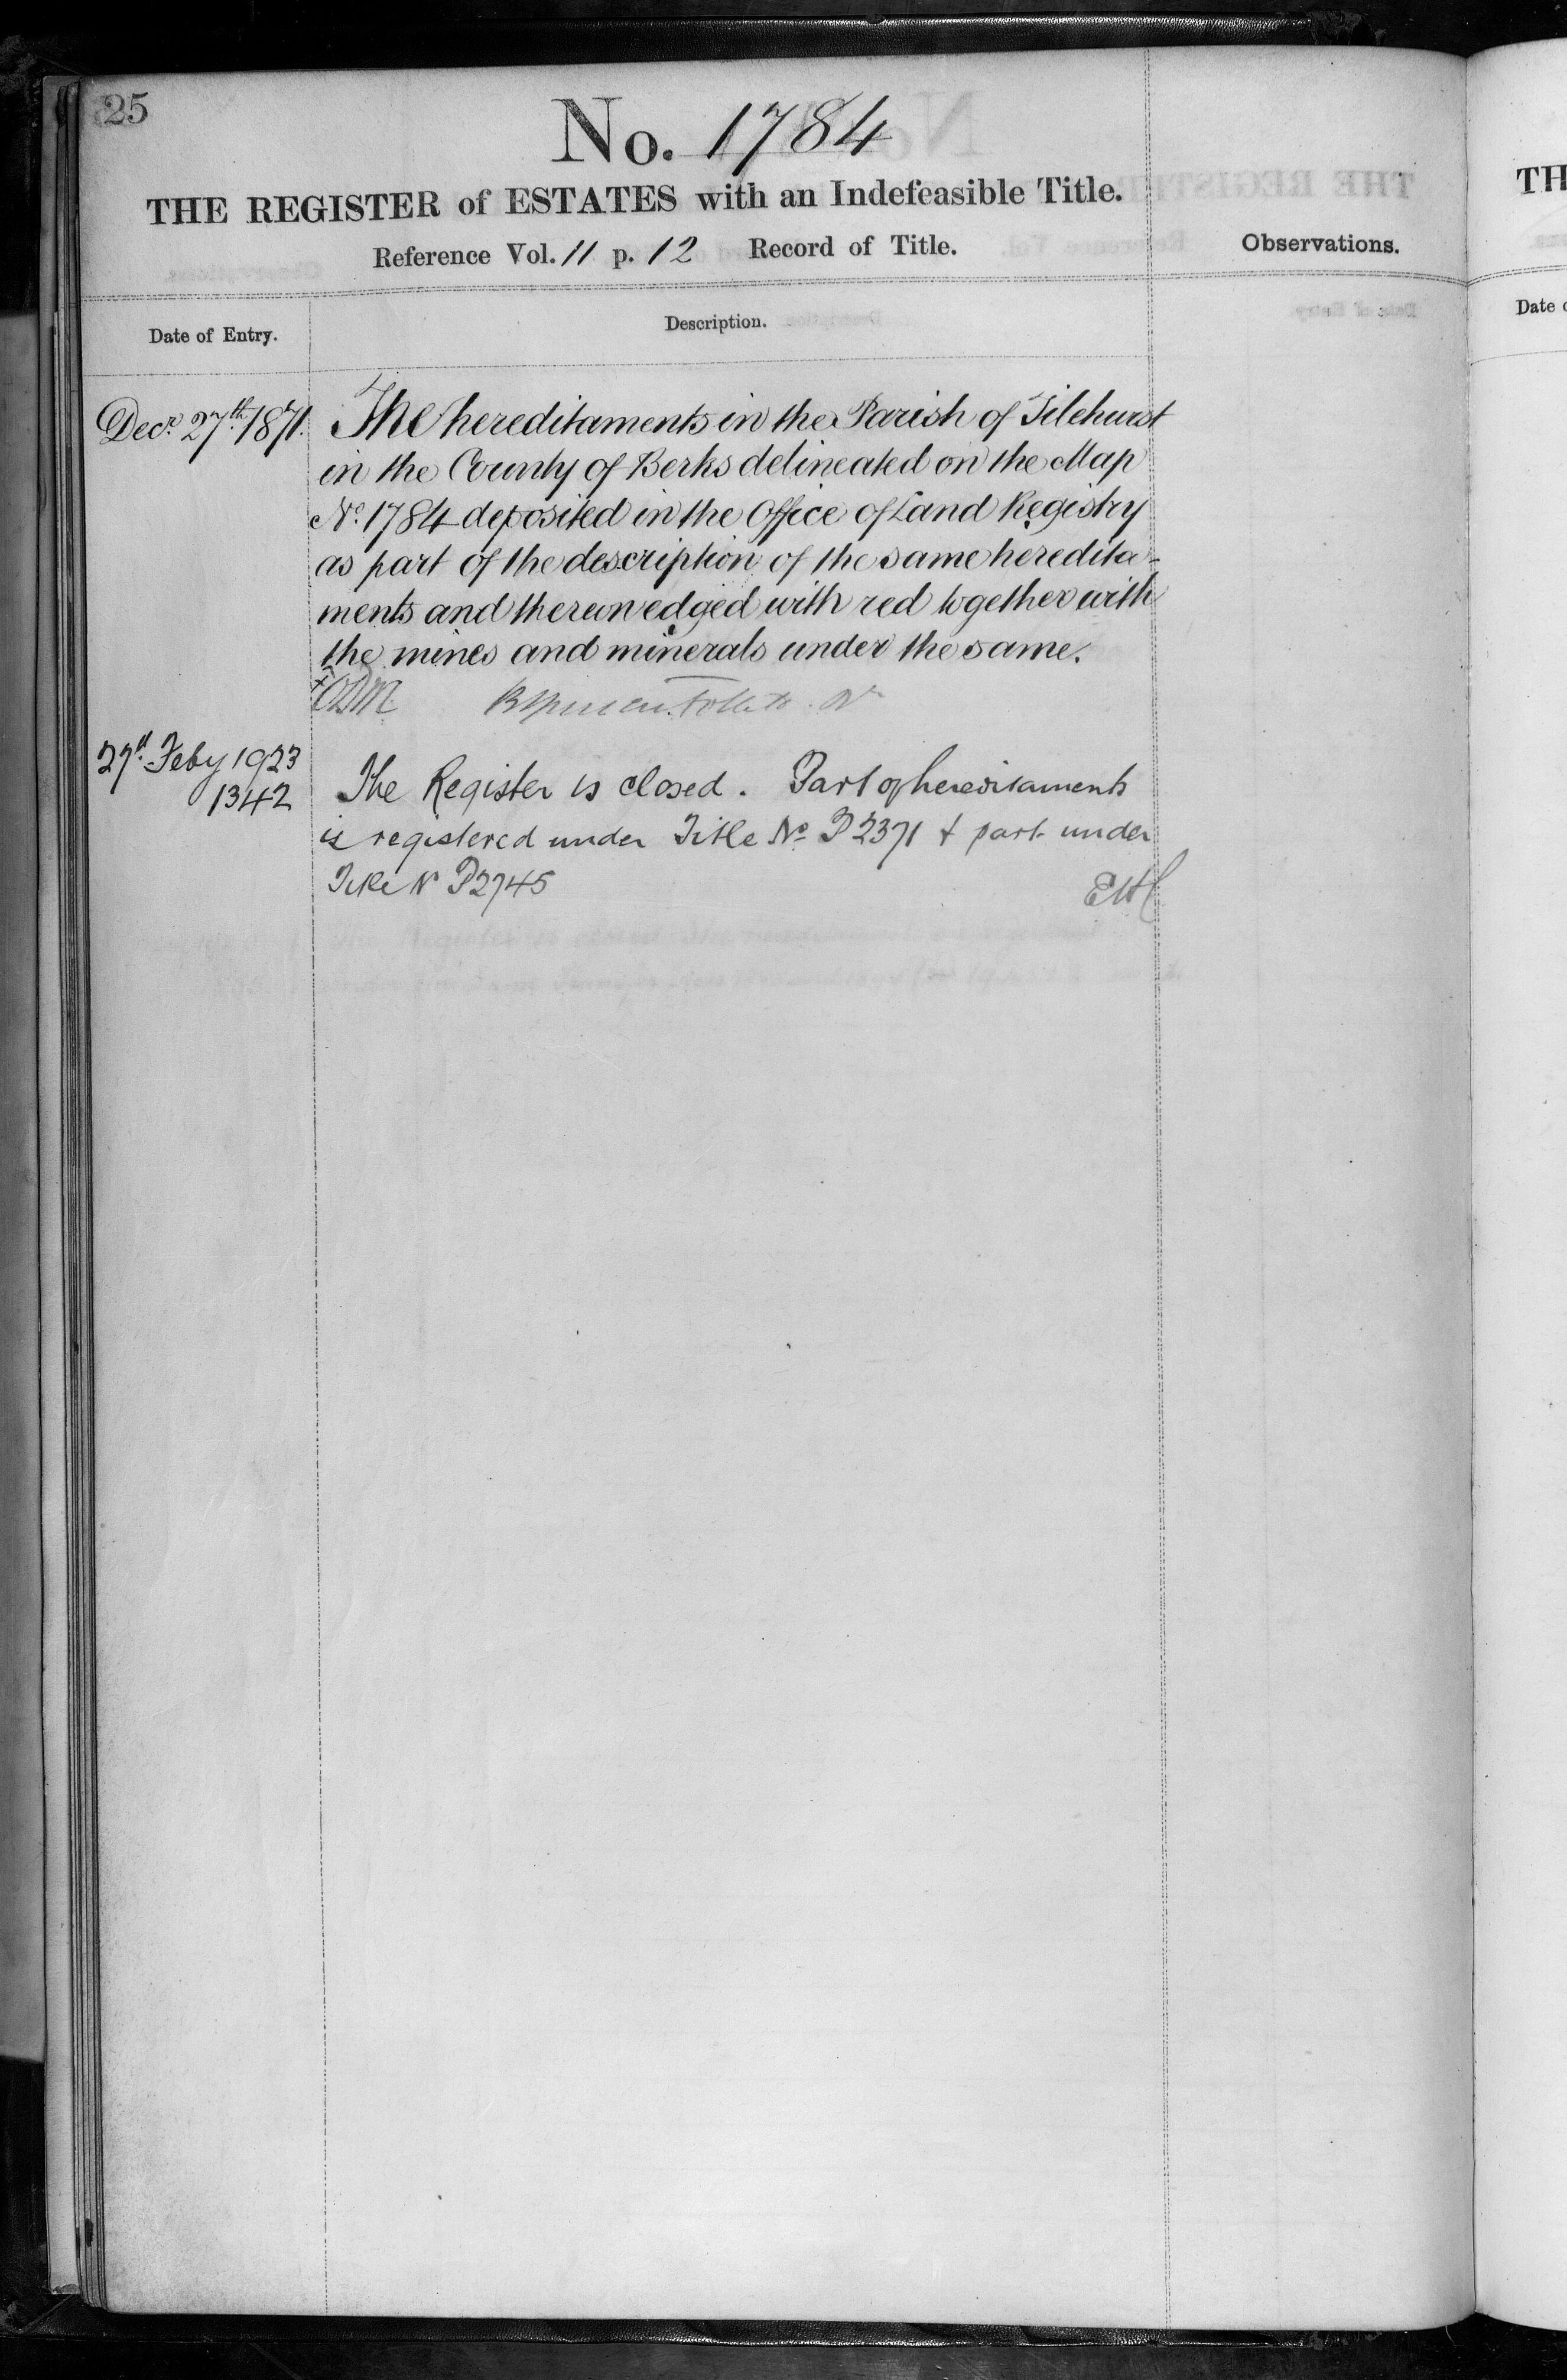 25
No. 1784
THE REGISTER of ESTATES with an Indefeasible Title.
Reference Vol. 11 p. 12 Record of Title.
Observations.
Date of Entry.
Description.
Decr. 27th. 1871.
The hereditaments in the Parish of Tilehurst
in the County of Berks delineated on the Map
No. 1784 deposited in the Office of Land Registry
as part of the description of the same heredita-
ments and thereon edged with red together with
the mines and minerals under the same.
27th Feby 1923
1342
The Register is closed. Part of hereditaments
is registered under Title No. P2371 & part under
Title No P2745
TH
Date